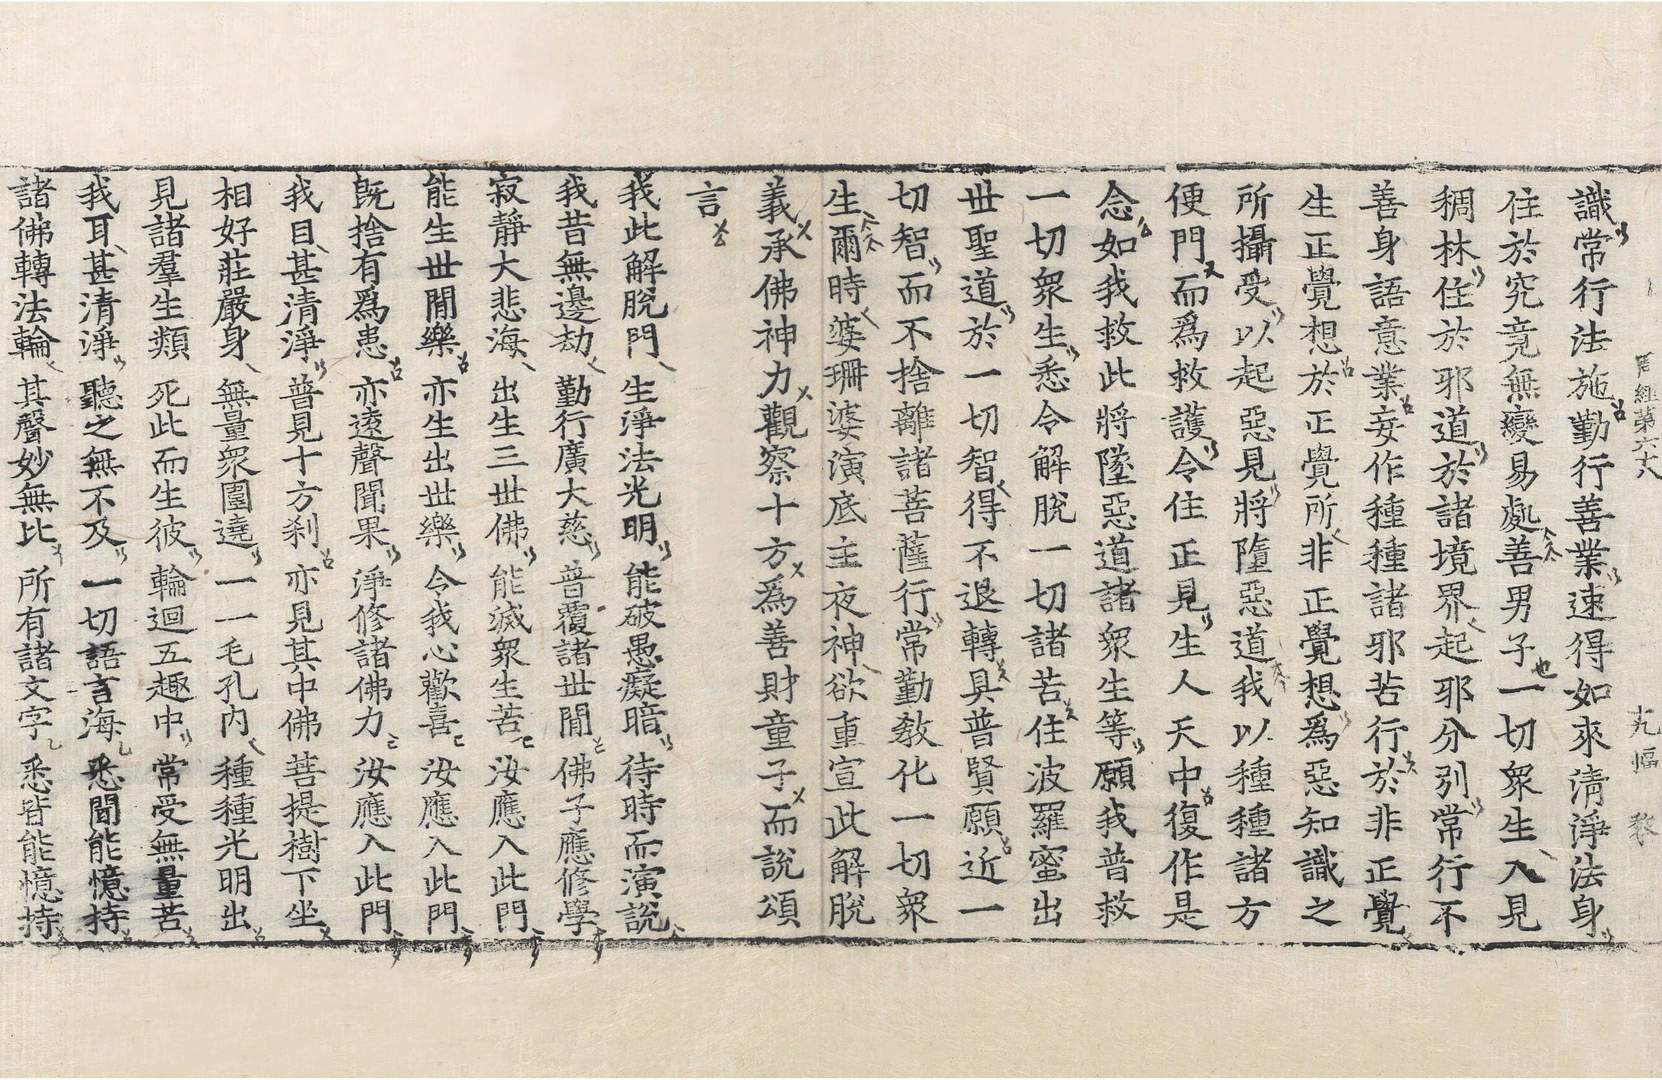 周經第六十八　十九幅　黎
識常行法施勤行善業速得如來清淨法身
住於究竟無變易處善男子一切衆生入見
稠林住於邪道於諸境界起邪分別常行不
善身語意業妄作種種諸邪苦行於非正覺
生正覺想於正覺所非正覺想爲惡知識之
所攝受以起惡見將墮惡道我以種種諸方
便門而爲救護令住正見生人天中復作是
念如我救此將墜惡道諸衆生等願我普救
一切衆生悉令解脫一切諸苦住波羅蜜出
世聖道於一切智得不退轉具普賢願近一
切智而不捨離諸菩薩行常勤敎化一切衆
生爾時婆珊婆演底主夜神欲重宣此解脫
義承佛神力觀察十方爲善財童子而說頌
言
我此解脫門　生淨法光明　能破愚癡暗　待時而演說
我昔無邊劫　勤行廣大慈　普覆諸世閒　佛子應修學
寂靜大悲海　出生三世佛　能滅衆生苦　汝應入此門
能生世閒樂　亦生出世樂　令我心歡喜　汝應入此門
旣捨有爲患　亦遠聲聞果　淨修諸佛力　汝應入此門
我目甚清淨　普見十方刹　亦見其中佛　菩提樹下坐
相好莊嚴身　無量衆圍遶　一一毛孔內　種種光明出
見諸羣生類　死此而生彼　輪迴五趣中　常受無量苦
我耳甚清淨　聽之無不及　一切語言海　悉聞能憶持
諸佛轉法輪　其聲妙無比　所有諸文字　悉皆能憶持